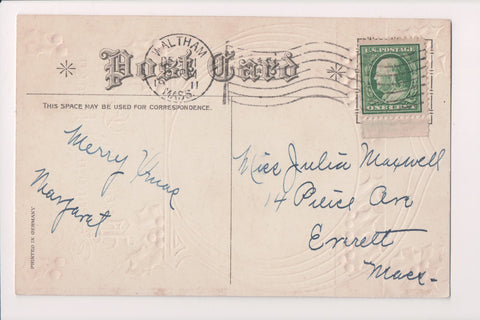 Post Card
WALTHAM
11
MASS.
U.S. POSTAGE
THIS SPACE MAY BE USED FOR CORRESPONDENCE.
Merry Xmas
Margaret
Miss Julia Maxwell
14 Peirce Ave
Everett
Mass-
PRINTED IN GERMANY